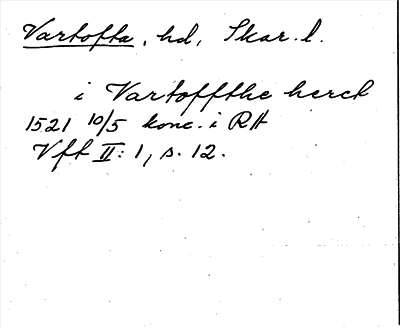 Vartofta, hd, Skar. l.
i Vartoffthe herct
1521 10/5 konc. i RA
Vft II: 1, s. 12.